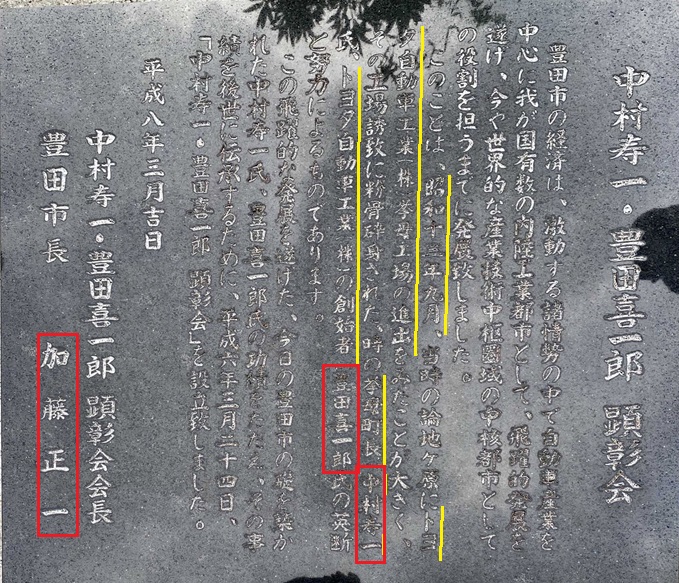 中村寿一・豊田喜一郎 顕彰会
豊田市の経済は、激動する諸情勢の中で自動車産業を
中心に我が国有数の内陸工業都市として、飛躍的発展を
遂げ、今や世界的な産業技術中枢圏域の中核都市として
の役割を担うまでに発展致しました。
このことは、昭和十三年九月、当時の論地ヶ原にトヨ
タ自動車工業(株)挙母工場の進出をみたことが大きく、
その工場誘致に粉骨砕身された、時の挙母町長 中村寿一
氏、トヨタ自動車工業(株)の創始者 豊田喜一郎氏の英断
と努力によるものであります。
この飛躍的な発展を遂げた、今日の豊田市の礎を築か
れた中村寿一氏、豊田喜一郎氏の功績をたたえ、その事
績を後世に伝承するために、平成六年三月二十四日、
「中村寿一・豊田喜一郎 顕彰会」を設立致しました。
平成八年三月吉日
中村寿一・豊田喜一郎 顕彰会会長
豊田市長 加藤正一